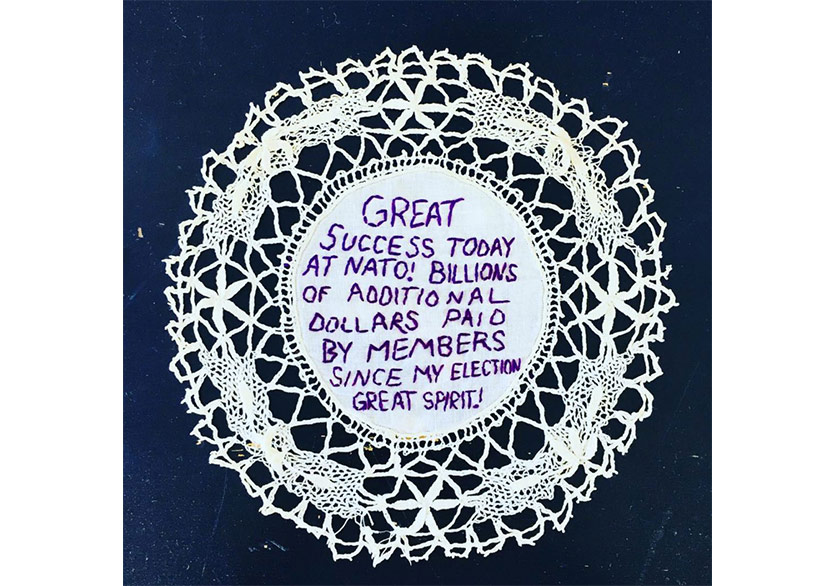 GREAT
SUCCESS TODAY
AT NATO! BILLIONS
OF ADDITIONAL
DOLLARS PAID
BY MEMBERS
SINCE MY ELECTION
GREAT SPIRIT!